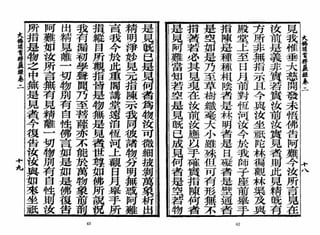 大佛頂首楞嚴經卷二
見我惟垂大慈開發未悟佛告阿難今汝所言見在
汝前是義非實若實汝前汝實見者則此見精既有
方所非無指示且今與汝坐祇陀林徧觀林渠及與
殿堂上至日月前對恒河汝今於我師子座前舉手
指陳是種種相陰者是林明者是日礙者是壁通者
是空如是乃至草樹纖毫大小雖殊但可有形無不
指著若必其見現在汝前汝應以手確實指陳何者
是見阿難當知若空是見既已成見何者是空若物
十八
62
是見既已是見何者為物汝可微細披剝萬象析出
精明淨妙見元指陳示我同彼諸物分明無惑阿難
言我今於此重閣講堂遠洎恒河上觀日月舉手所
指縱目所觀指皆是物無是見者世尊如佛所說況
我有漏初學聲聞乃至菩薩亦不能於萬物象前剖
出精見離一切物別有自性佛言如是如是佛復告
阿難如汝所言無有見精離一切物別有自性則汝
所指是物之中無是見者今復告汝汝與如來坐祇
大佛頂首楞嚴經卷二
十九
63